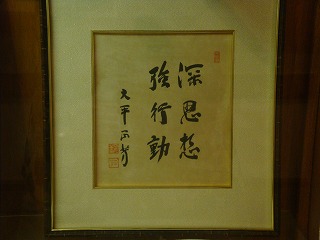 深思想
強行動
大平正芳